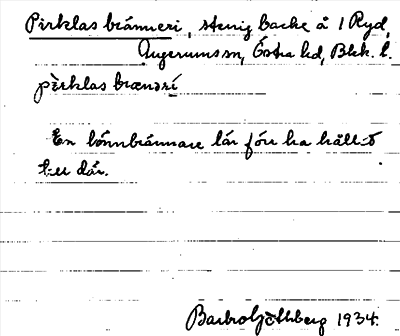 Pirklas bränneri, stenig backe å 1 Ryd,
Augerums sn, Östra hd, Blek. l.
pìrklas brænəri
En lönnbrännare lär förr ha hållit
till där.
Barbro Göthberg 1934.